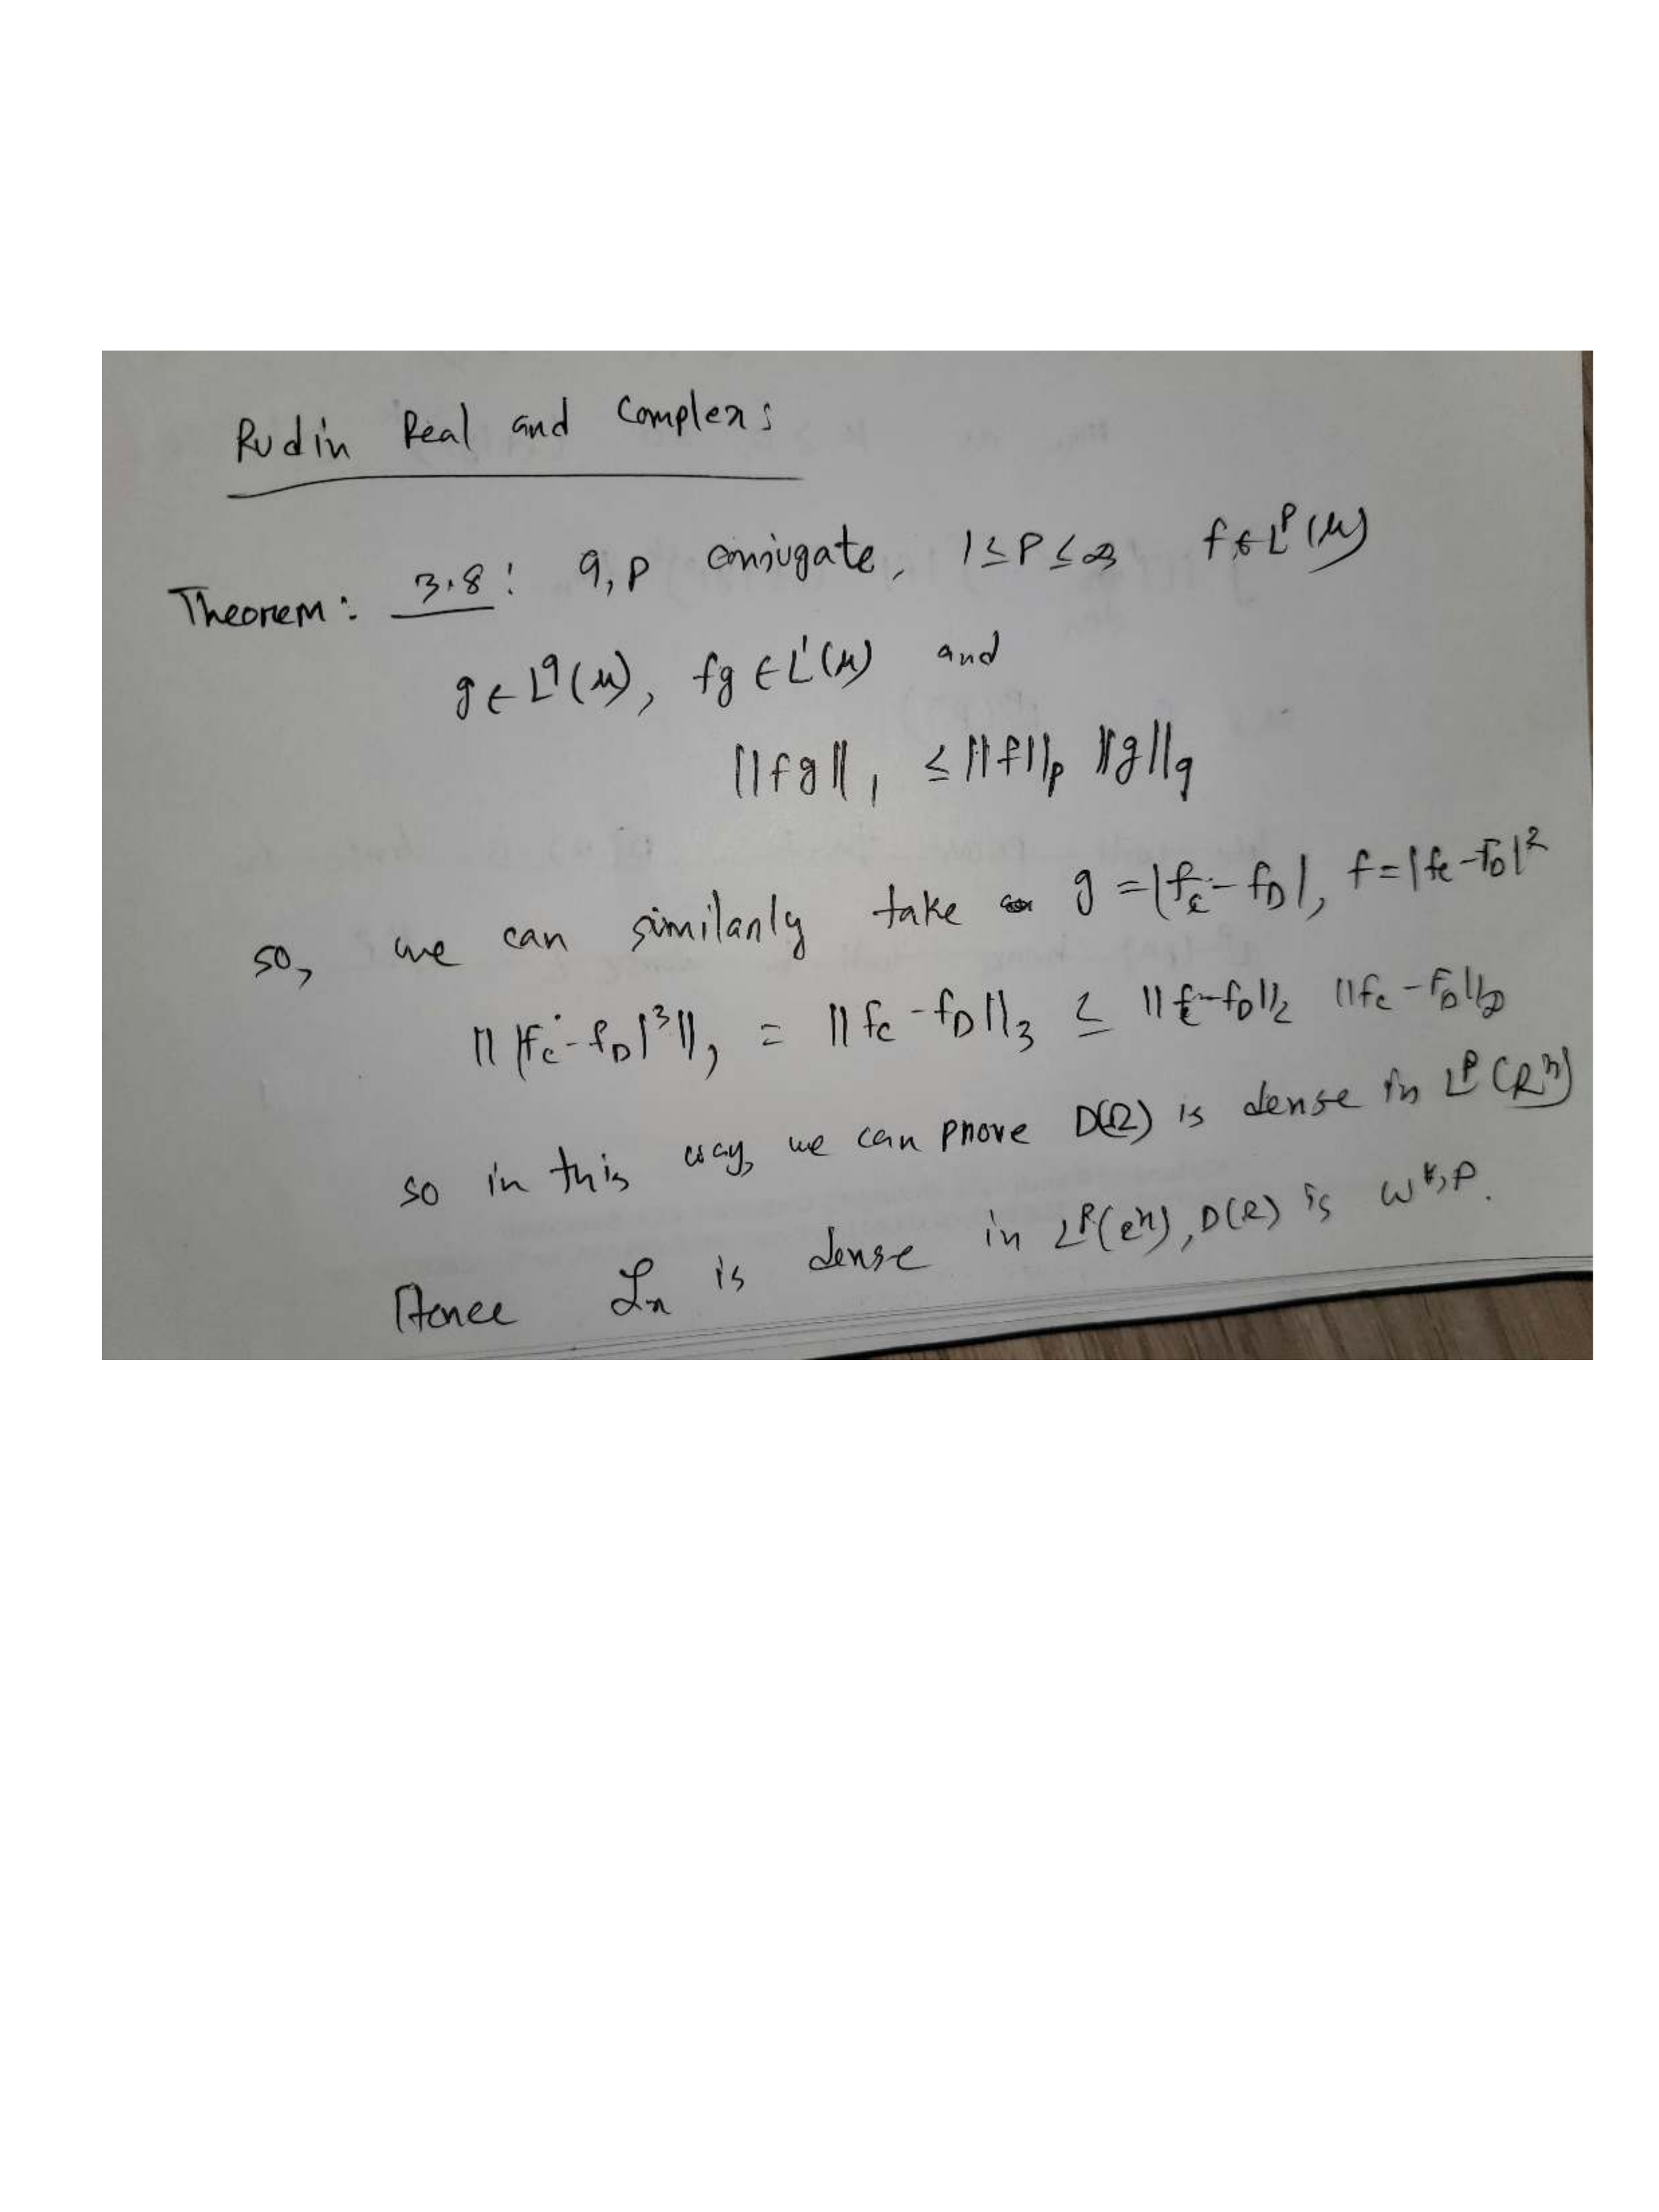 Rudin Real and Complex:
Theorem: 3.8: q, p conjugate, 1 ≤ P ≤ ∞ f ∈ L^p(μ)
g ∈ L^q(μ), fg ∈ L^1(μ) and
||fg||_1 ≤ ||f||_p ||g||_q
so, we can similarly take g = |f_c - f_D|, f = |f_c - f_D|^2
|| |f_c - f_D|^3 ||_1 = || f_c - f_D ||_3 ≤ || f_c - f_D ||_2 || f_c - f_D ||_2
so in this way, we can prove D(Ω) is dense in L^p(R^n)
Hence 𝒮_n is dense in L^p(R^n), D(R) is W^{k,p}.